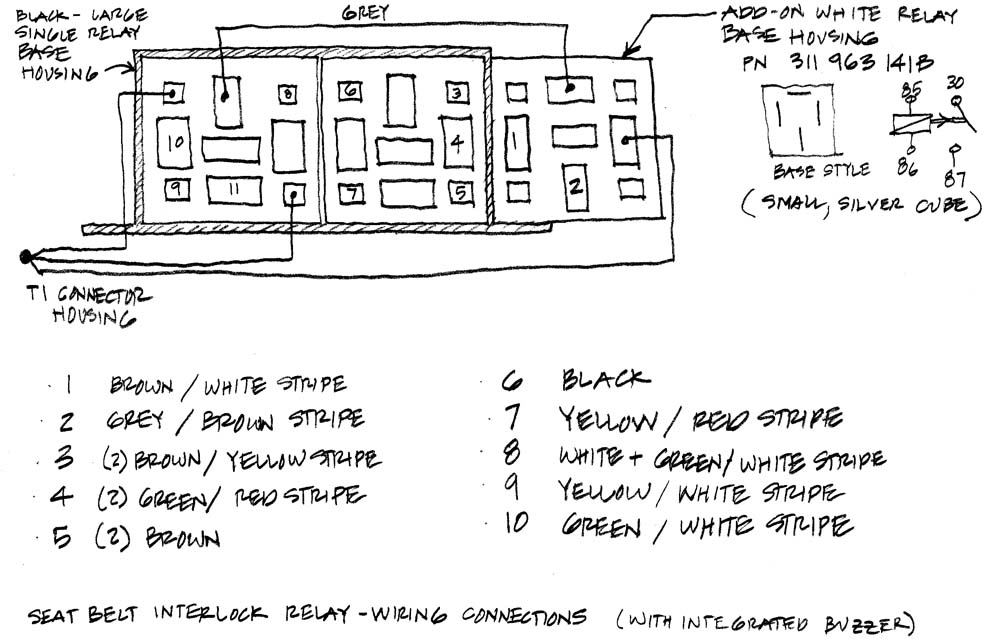 BLACK - LARGE
SINGLE RELAY
BASE
HOUSING
GREY
ADD-ON WHITE RELAY
BASE HOUSING
PN 311 963 141B
6
8
3
10
4
1
9
11
7
5
2
85
30
86
87
BASE STYLE
(SMALL, SILVER CUBE)
T1 CONNECTOR
HOUSING
· 1 BROWN / WHITE STRIPE
· 2 GREY / BROWN STRIPE
· 3 (2) BROWN / YELLOW STRIPE
· 4 (2) GREEN / RED STRIPE
· 5 (2) BROWN
· 6 BLACK
· 7 YELLOW / RED STRIPE
· 8 WHITE + GREEN / WHITE STRIPE
· 9 YELLOW / WHITE STRIPE
· 10 GREEN / WHITE STRIPE
SEAT BELT INTERLOCK RELAY - WIRING CONNECTIONS (WITH INTEGRATED BUZZER)